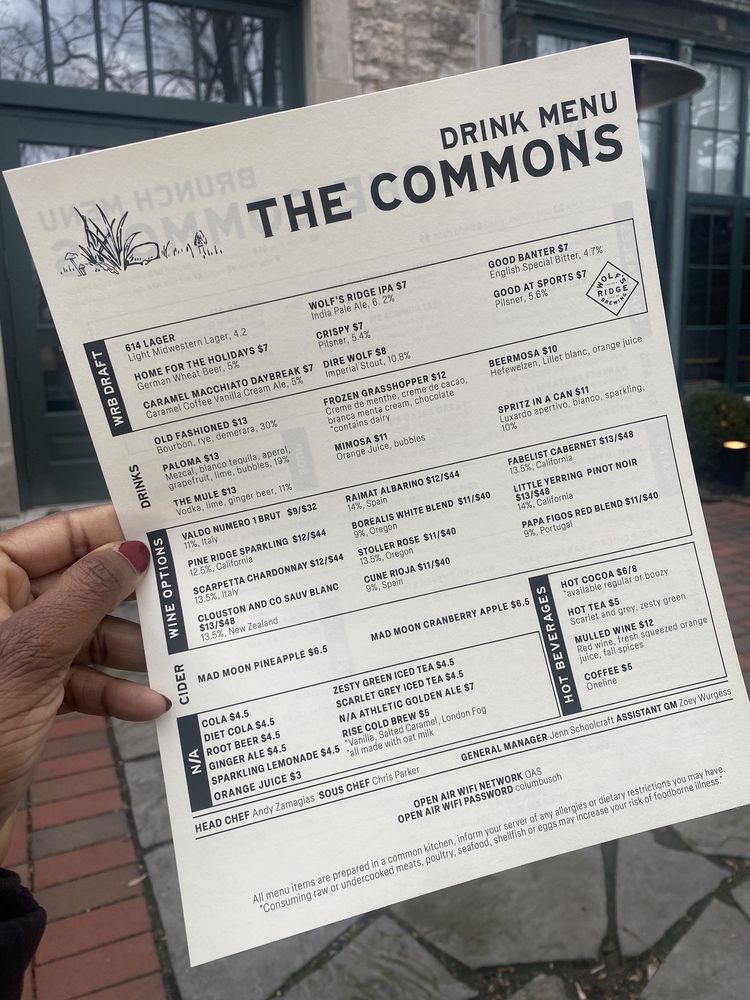 DRINK MENU
THE COMMONS
BRUNCH MENU
WRB DRAFT
614 LAGER
Light Midwestern Lager, 4.2
HOME FOR THE HOLIDAYS $7
German Wheat Beer, 5%
CARAMEL MACCHIATO DAYBREAK $7
Caramel Coffee Vanilla Cream Ale, 5%
WOLF'S RIDGE IPA $7
India Pale Ale, 6. 2%
CRISPY $7
Pilsner, 5.4%
DIRE WOLF $8
Imperial Stout, 10.8%
GOOD BANTER $7
English Special Bitter, 4.7%
GOOD AT SPORTS $7
Pilsner, 5.6%
WOLF'S
RIDGE
BREWING
DRINKS
OLD FASHIONED $13
Bourbon, rye, demerara, 30%
PALOMA $13
Mezcal, blanco tequila, aperol,
grapefruit, lime, bubbles, 19%
THE MULE $13
Vodka, lime, ginger beer, 11%
FROZEN GRASSHOPPER $12
Creme de menthe, creme de cacao,
branca menta cream, chocolate
*contains dairy
MIMOSA $11
Orange Juice, bubbles
BEERMOSA $10
Hefeweizen, Lillet blanc, orange juice
SPRITZ IN A CAN $11
Luxardo apertivo, bianco, sparkling,
10%
WINE OPTIONS
VALDO NUMERO 1 BRUT $9/$32
11%, Italy
PINE RIDGE SPARKLING $12/$44
12.5%, California
SCARPETTA CHARDONNAY $12/$44
13.5%, Italy
CLOUSTON AND CO SAUV BLANC
$13/$48
13.5%, New Zealand
RAIMAT ALBARINO $12/$44
14%, Spain
BOREALIS WHITE BLEND $11/$40
9%, Oregon
STOLLER ROSE $11/$40
13.5%, Oregon
CUNE RIOJA $11/$40
9%, Spain
FABELIST CABERNET $13/$48
13.5%, California
LITTLE YERRING PINOT NOIR
$13/$48
14%, California
PAPA FIGOS RED BLEND $11/$40
9%, Portugal
CIDER
MAD MOON PINEAPPLE $6.5
MAD MOON CRANBERRY APPLE $6.5
N/A
COLA $4.5
DIET COLA $4.5
ROOT BEER $4.5
GINGER ALE $4.5
SPARKLING LEMONADE $4.5
ORANGE JUICE $3
ZESTY GREEN ICED TEA $4.5
SCARLET GREY ICED TEA $4.5
N/A ATHLETIC GOLDEN ALE $7
RISE COLD BREW $5
*Vanilla, Salted Caramel, London Fog
*all made with oat milk
HOT BEVERAGES
HOT COCOA $6/8
*available regular or boozy
HOT TEA $5
Scarlet and grey, zesty green
MULLED WINE $12
Red wine, fresh squeezed orange
juice, fall spices
COFFEE $5
Oneline
HEAD CHEF Andy Zamagias SOUS CHEF Chris Parker GENERAL MANAGER Jenn Schoolcraft ASSISTANT GM Zoey Wurgess
OPEN AIR WIFI NETWORK OAS
OPEN AIR WIFI PASSWORD columbusoh
All menu items are prepared in a common kitchen, inform your server of any allergies or dietary restrictions you may have.
*Consuming raw or undercooked meats, poultry, seafood, shellfish or eggs may increase your risk of foodborne illness.*